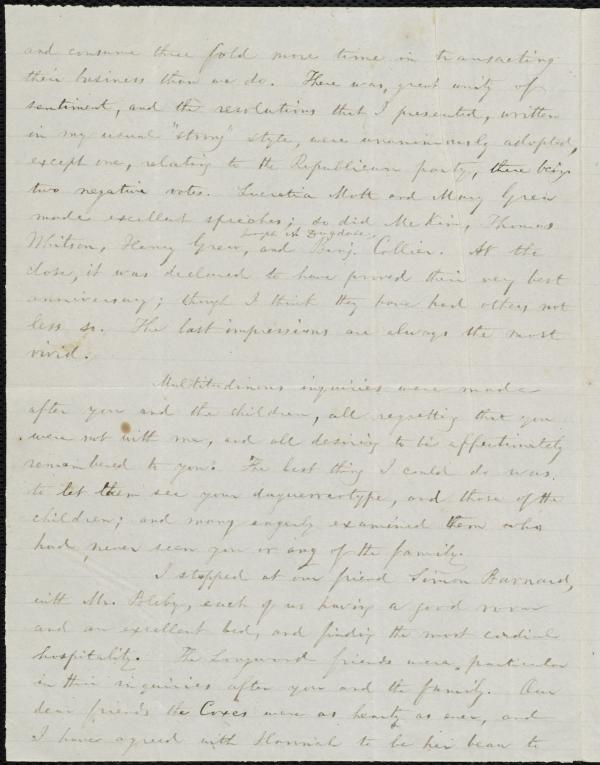 and consume three fold more time in transacting
their business than we do. There was, great unity of
sentiment, and the resolutions that I presented, written
in my usual "strong" style, were unanimously adopted,
except one, relating to the Republican party, there being
two negative votes. Lucretia Mott and Mary Grew
made excellent speeches; so did McKim, Thomas
Joseph A Dugdale,
Whitson, Henry Grew, and Benj. Collier. At the
close, it was declared to have proved their very best
anniversary; though I think they have had others not
less so. The last impressions are always the most
vivid.
Multitudinous inquiries were made
after you and the children, all regretting that you
were not with me, and all desiring to be affectionately
remembered to you. The best thing I could do was
to let them see your daguerreotype, and those of the
children; and many eagerly examined them who
had never seen you or any of the family.
I stopped at our friend Simon Barnard,
with Mr. Bleby, each of us having a good room
and an excellent bed, and finding the most cordial
hospitality. The Longwood friends were particular
in their inquiries after you and the family. Our
dear friends the Coxes were as hearty as ever, and
I have agreed with Hannah to be her beau to